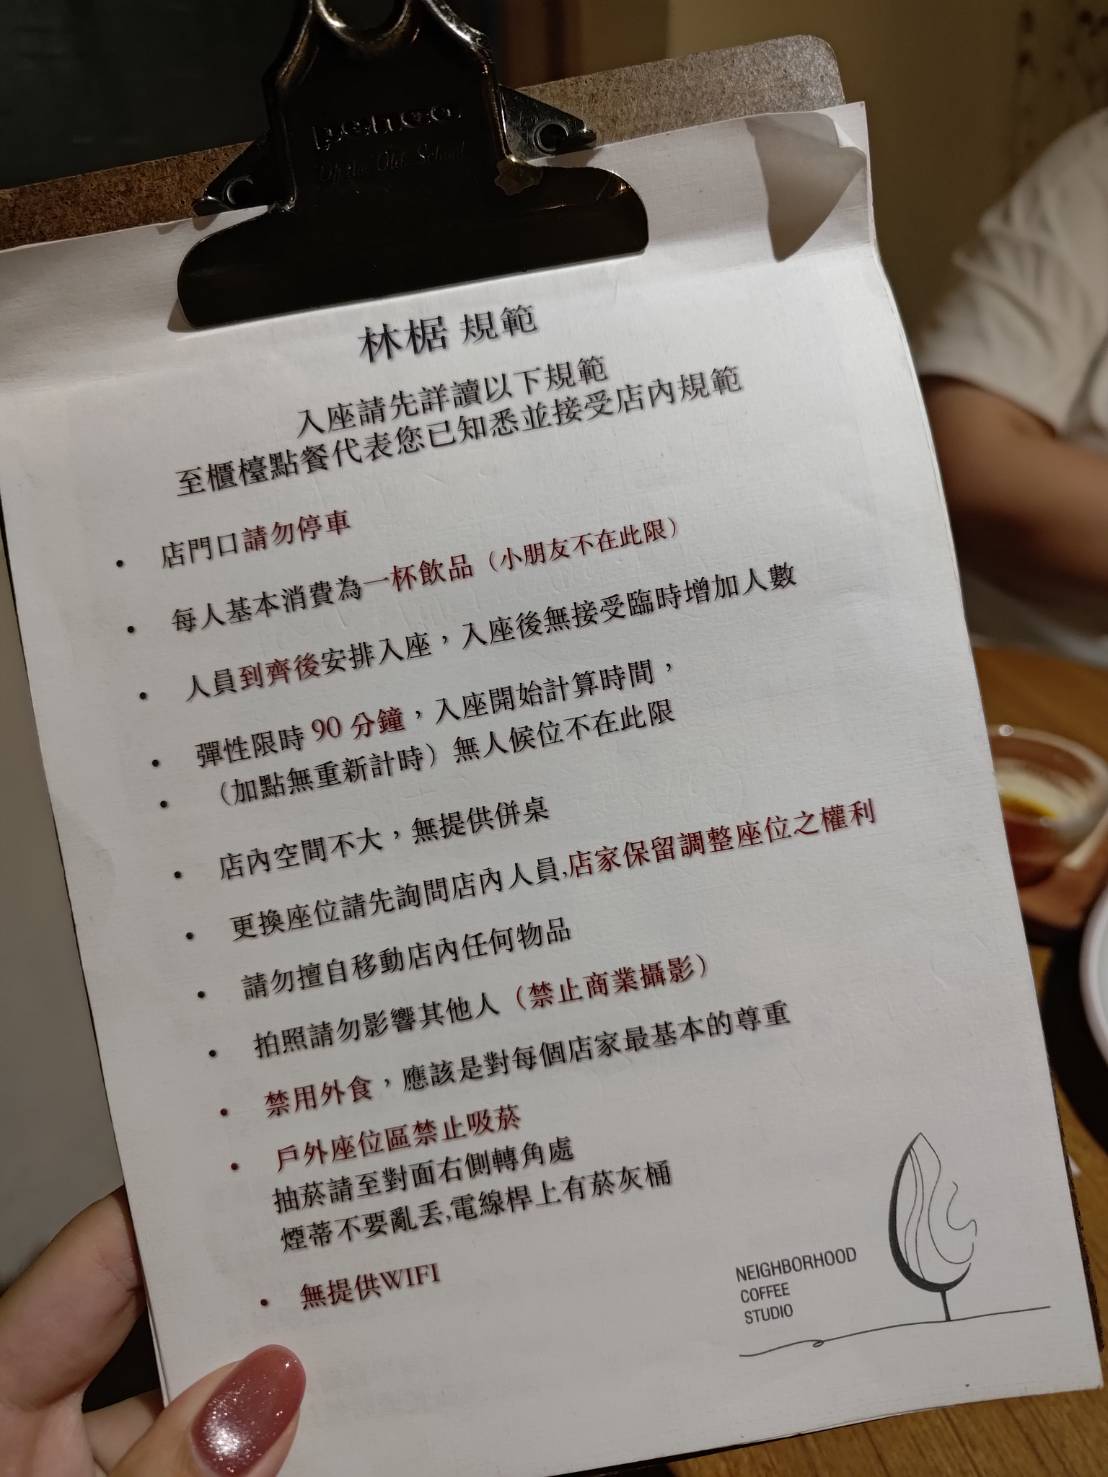 penco.
林椐 規範
入座請先詳讀以下規範
至櫃檯點餐代表您已知悉並接受店內規範
• 店門口請勿停車
• 每人基本消費為一杯飲品（小朋友不在此限）
• 人員到齊後安排入座，入座後無接受臨時增加人數
• 彈性限時 90 分鐘，入座開始計算時間，
• （加點無重新計時）無人候位不在此限
• 店內空間不大，無提供併桌
• 更換座位請先詢問店內人員,店家保留調整座位之權利
• 請勿擅自移動店內任何物品
• 拍照請勿影響其他人（禁止商業攝影）
• 禁用外食，應該是對每個店家最基本的尊重
• 戶外座位區禁止吸菸
抽菸請至對面右側轉角處
煙蒂不要亂丟,電線桿上有菸灰桶
• 無提供WIFI
NEIGHBORHOOD
COFFEE
STUDIO